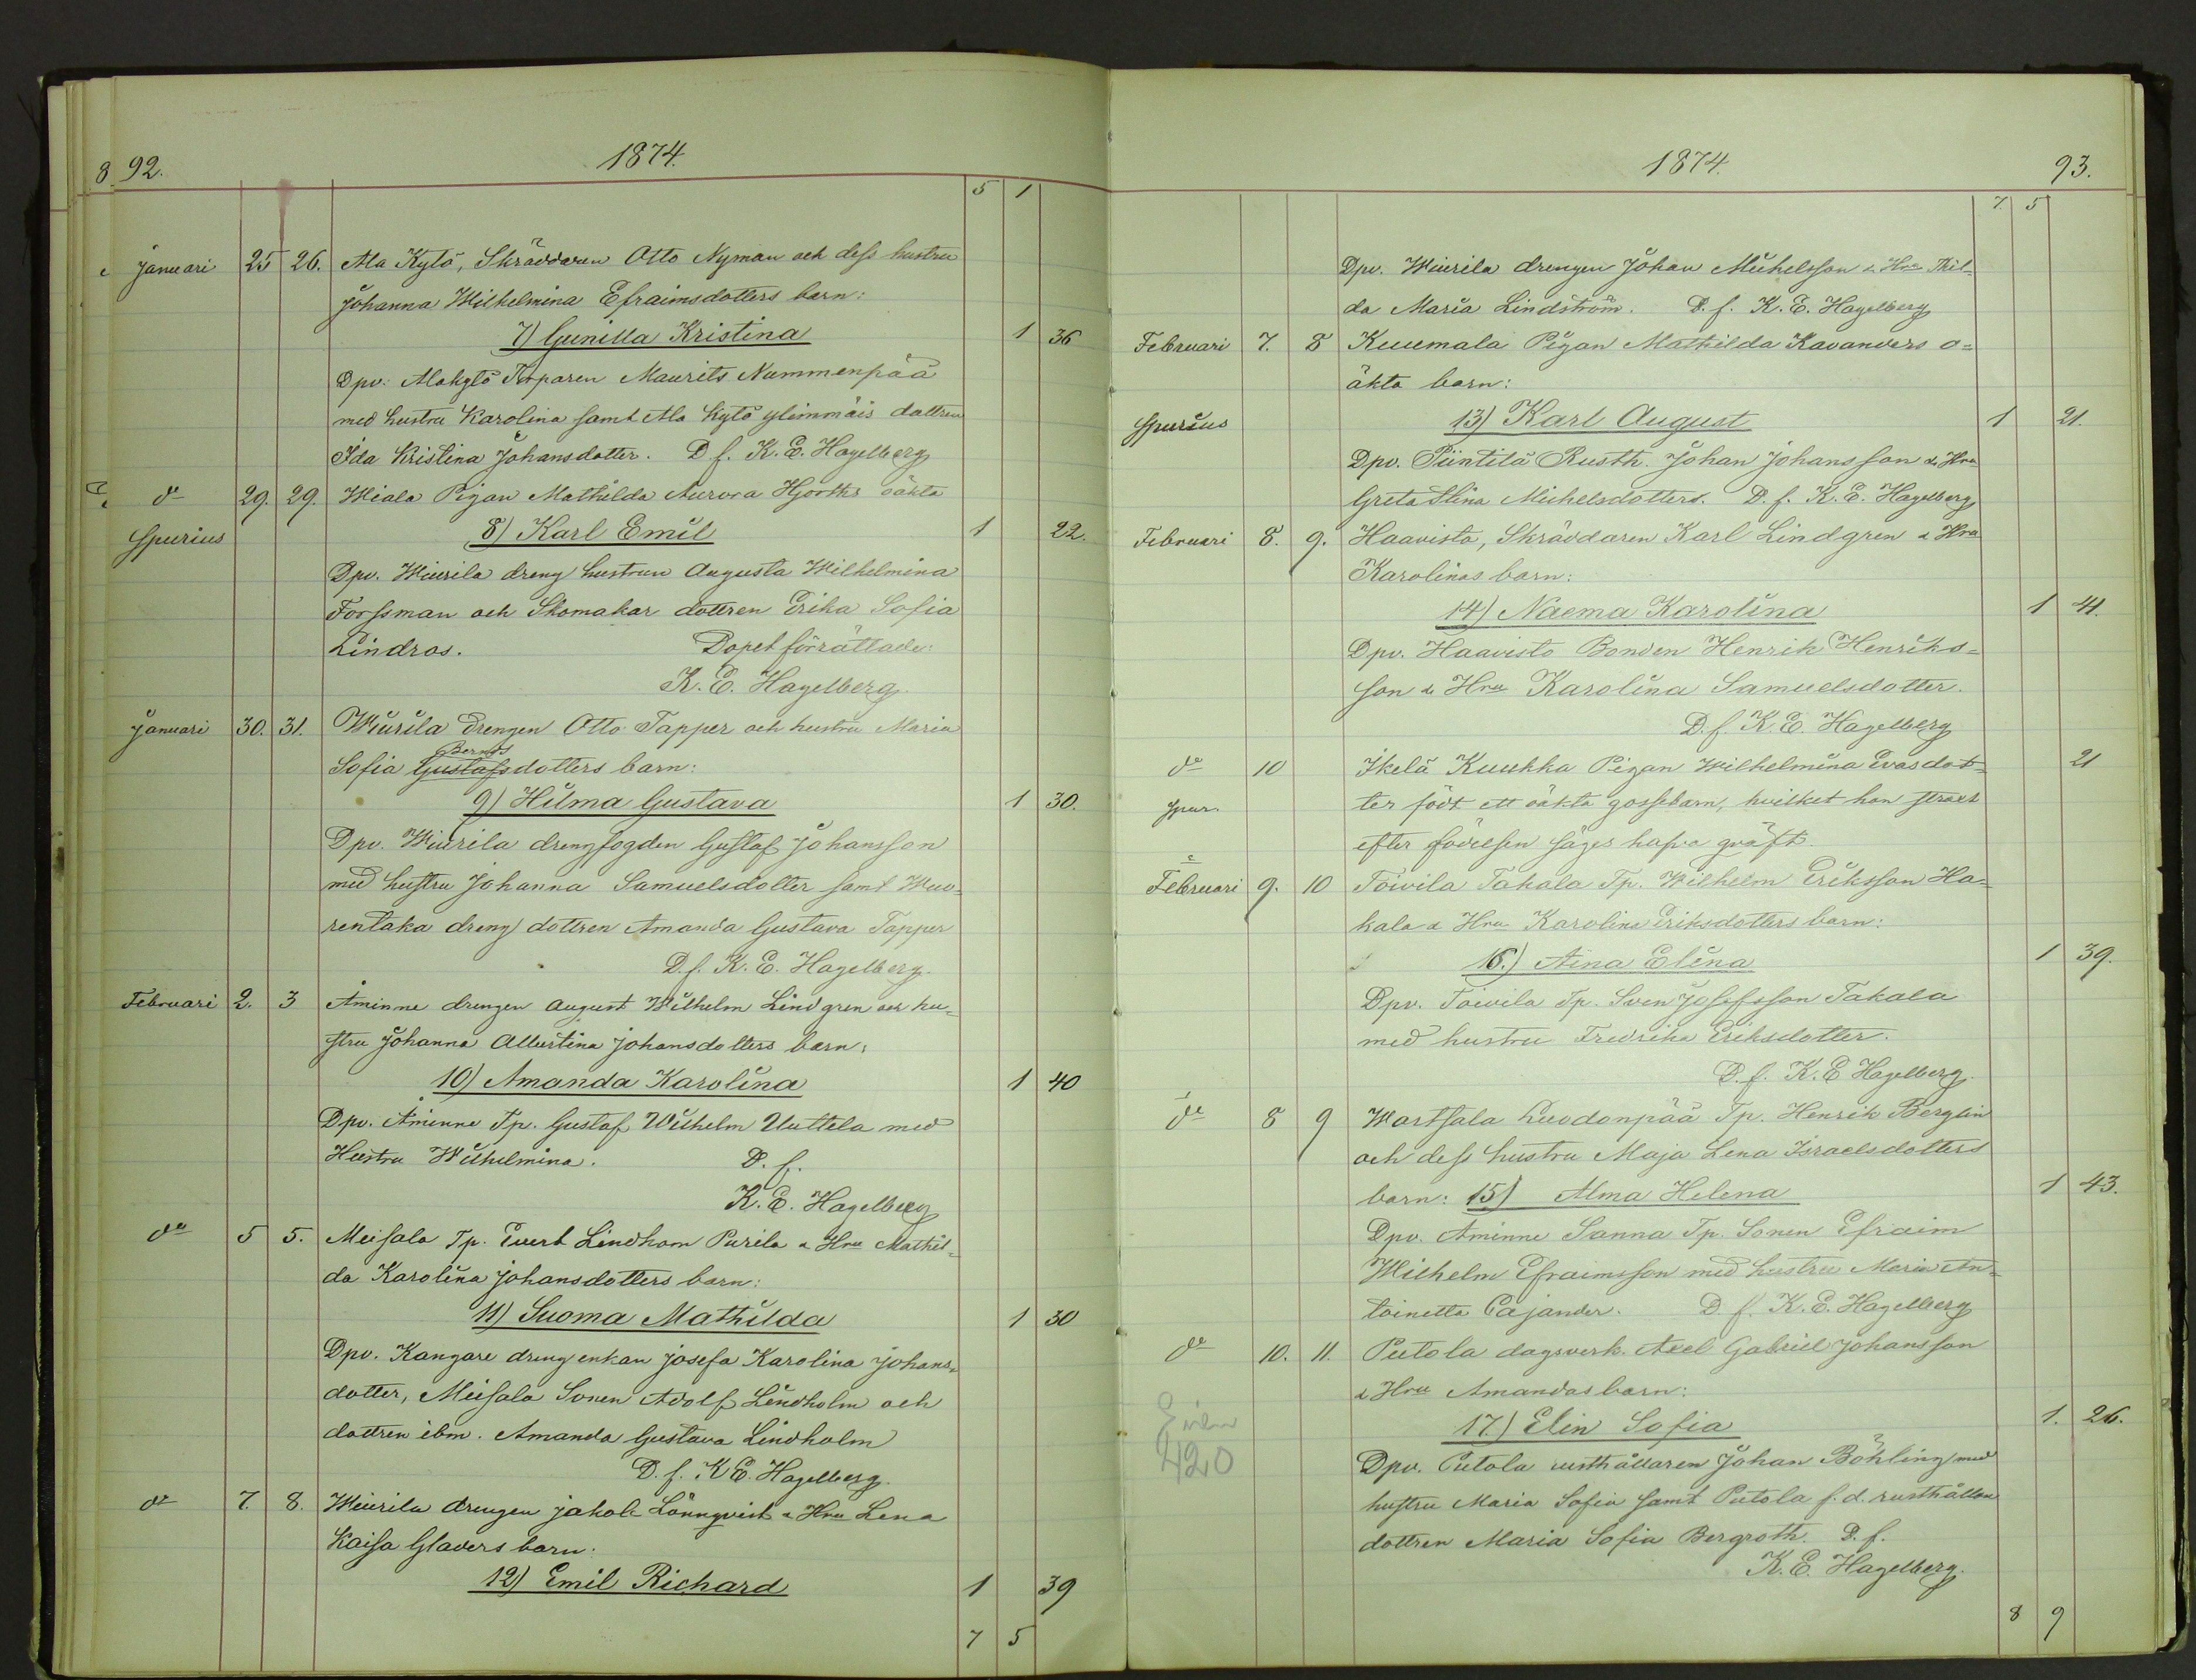 8 92. 1874.
5 1
Januari 25 26. Ala Kytö, Skräddaren Otto Nyman och dess hustru
Johanna Wilhelmina Efraimsdotters barn:
7) Gunilla Kristina 1 36
Dpv: Alakytö Torparen Maurits Nummenpää
med hustru Karolina samt Ala Kytö ylimmäis dottren
Ida Kristina Johansdotter. D. f. K. E. Hagelberg
do 29. 29. Wiala Pigan Mathilda Aurora Hjorths oäkta
spurius 8) Karl Emil 1 22.
Dpv. Wiurila dreng hustrun Augusta Wilhelmina
Forssman och Skomakar dottren Erika Sofia
Lindros. Dopet förrättade:
K. E. Hagelberg.
Januari 30. 31. Wiurila Drengen Otto Tapper och hustru Maria
Bernts
Sofia Gustafsdotters barn:
9) Hilma Gustava 1 30.
Dpv. Wiurila drengfogden Gustaf Johansson
med hustru Johanna Samuelsdotter samt Wuo-
rentaka dreng dottren Amanda Gustava Tapper
D. f. K. E. Hagelberg.
Februari 2. 3 Åminne drengen August Wilhelm Lindgren och hu-
stru Johanna Albertina Johansdotters barn:
10) Amanda Karolina 1 40
Dpv. Åminne Tp. Gustaf Wilhelm Uuttela med
Hustru Wilhelmina. D. f.
K. E. Hagelberg
do 5 5. Meisala Tp. Evert Lindhom Purila & Hru Mathil-
da Karolina Johansdotters barn:
11) Suoma Mathilda 1 30
Dpv. Kangare dreng enkan Josefa Karolina Johans-
dotter, Meisala Sonen Adolf Lindholm och
dottren ibm. Amanda Gustava Lindholm
D. f. K. E. Hagelberg.
do 7. 8. Wiurila drengen Jakob Lönnqvist & Hru Lena
Kaisa Glavers barn:
12) Emil Richard 1 39
7 5
1874. 93.
7. 5
Dpv. Wiurila drengen Johan Michelsson & Hru Thil-
da Maria Lindström. D. f. K. E. Hagelberg
Februari 7. 8 Kuumala Pigan Mathilda Kavanders o-
äkta barn:
spurius 13) Karl August 1 21.
Dpv. Piintilä Rusth. Johan Johansson & Hru
Greta Stina Michelsdotters. D. f. K. E. Hagelberg
Februari 8. 9. Haavisto, Skräddaren Karl Lindgren & Hru
Karolinas barn:
14) Naema Karolina 1 41.
Dpv. Haavisto Bonden Henrik Henriks-
son & Hru Karolina Samuelsdotter.
D. f. K. E. Hagelberg
do 10 Ikelä Kuukka Pigan Wilhelmina Evasdot- 21
spur. ter födt ett oäkta gossebarn, hvilket hon straxt
efter födelsen säges hafva gräft.
Februari 9. 10 Toivila Takala Tp. Wilhelm Eriksson Ha-
kala & Hru Karolina Eriksdotters barn:
16.) Aina Elina 1 39.
Dpv. Toivila Tp. Sven Josefsson Takala
med hustru Fredrika Eriksdotter.
D. f. K. E. Hagelberg.
do 8 9 Wartsala Luodonpää Tp. Henrik Berglin
och dess hustru Maja Lena Israelsdotters
barn: 15) Alma Helena 1 43.
Dpv. Aminne Sanna Tp. Sonen Efraim
Wilhelm Efraimsson med hustru Maria An-
toinetta Cajander. D. f. K. E. Hagelberg
do 10. 11. Putola dagsverk. Axel Gabriel Johansson
& Hru Amandas barn:
17) Elin Sofia 1. 26.
420
Dpv. Putola rusthållaren Johan Böhling med
hustru Maria Sofia samt Putola f. d. rusthållar
dottren Maria Sofia Bergroth. D. f.
K. E. Hagelberg.
8 9